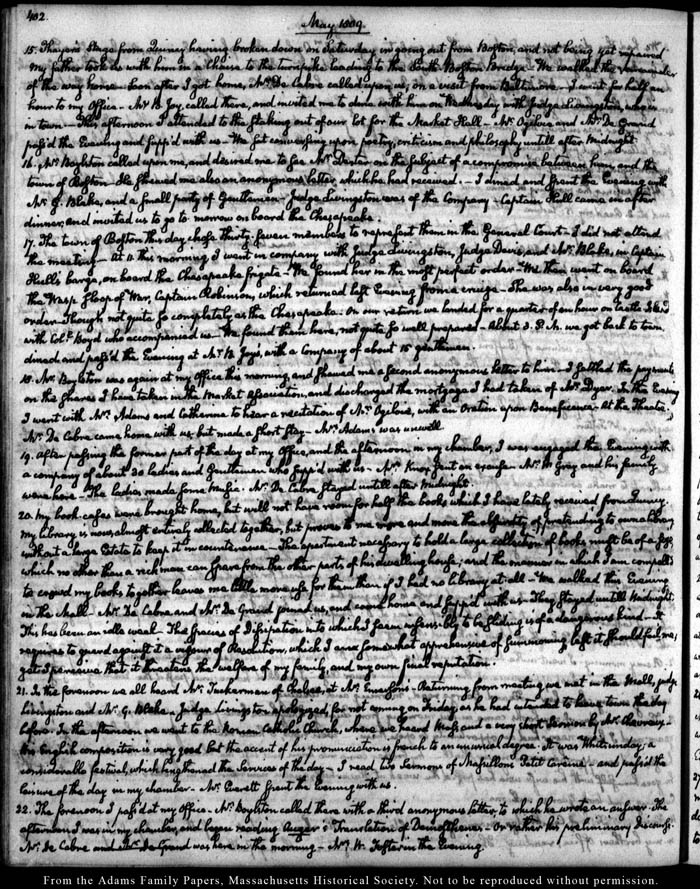 402.
May 1809.
15. Thayer's Stage from Quincy having broken down on Saturday in going out from Boston, and not being yet repaired
my father took us with him in a chaise to the turnpike leading to the South Boston Bridge— We walked the remainder
of the way home— Soon after I got home, Mr De Cabre called upon us, on a visit from Baltimore— I went for half an
hour to my Office— Mr B. Joy, called there, and invited me to dine with him on Wednesday with Judge Livingston, who is
in town— This afternoon I attended to the staking out of our lot for the Market Hall— Mr Ogilvie and Mr De Grand
pass'd the Evening and supp'd with us— We sat conversing upon poetry, criticism and philosophy untill after Midnight.
16. Mr Boylston called upon me, and desired me to see Mr Dexter on the subject of a compromise between him, and the
town of Boston— He shewed me also an anonymous letter, which he had received.— I dined and spent the Evening with
Mr G. Blake, and a small party of Gentlemen— Judge Livingston was of the Company— Captain Hull came in after
dinner, and invited us to go to-morrow on board the Chesapeake.
17. The town of Boston this day chose thirty-seven members to represent them in the General Court— I did not attend
the meeting— At 11. this morning I went in company with Judge Livingston, Judge Davis, and Mr Blake, in Captain
Hull's barge, on board the Chesapeake frigate— We found her in the most perfect order— We then went on board
the Wasp Sloop of War, Captain Robinson, which returned last Evening from a cruize— She was also in very good
order though not quite so completely as the Chesapeake. On our return we landed for a quarter of an hour on Castle Island
with Coll. Boyd who accompanied us— We found them here, not quite so well prepared— About 3. P.M. we got back to town.
dined and pass'd the Evening at Mr B. Joy's, with a company of about 15 gentlemen.
18. Mr Boylston was again at my Office this morning, and shewed me a second anonymous letter to him— I settled the payments
on the shares I have taken in the Market Association, and discharged the mortgage I had taken of Mr Dyer. In the Evening
I went with Mrs Adams and Catherine to hear a recitation of Mr Ogilvie, with an Oration upon Beneficence— At the Theatre.
Mr De Cabre came home with us, but made a short stay— Mrs Adams was unwell.
19. After passing the former part of the day at my Office, and the afternoon in my chamber, I was engaged the Evening with
a company of about 30 ladies and Gentlemen who supp'd with us— Mrs Knox sent an excuse— Mr W. Gray and his family
were here— The ladies made some Music. Mr De Cabre stayed untill after midnight.
20. My book-cases were brought home, but will not have room for half the books which I have lately received from Quincy.
My library is now almost entirely collected together, but proves to me more and more the absurdity of pretending to own a library
without a large Estate to keep it in countenance— The apartment necessary to hold a large collection of books must be of a size,
which no other than a rich man can spare from the other parts of his dwelling house; and the manner in which I am compell'd
to crowd my books together leaves me little more use for them than if I had no library at all— We walked this Evening
in the Mall— Mr De Cabre, and Mr De Grand joined us, and came home and supp'd with us— They stayed untill Midnight.
This has been an idle week— The species of Dissipation into which I seem insensibly to be gliding is of a dangerous kind— It
requires to guard against it a vigour of Resolution, which I am somewhat apprehensive of summoning, lest it should fail me;
yet I perceive that it threatens the welfare of my family, and my own final reputation.
21. In the forenoon we all heard Mr Tuckerman of Chelsea, at Mr Emerson's— Returning from meeting we met in the Mall, Judge
Livingston and Mr G. Blake. Judge Livingston apologized, for not coming on Friday, as he had intended to leave town the day
before. In the afternoon we went to the Roman Catholic Church, where we heard Mass and a very short Sermon by Mr Cheverus—
His English composition is very good but the accent of his pronunciation is french to an unusual degree. It was Whitsunday; a
considerable festival, which lengthened the services of the day— I read two Sermons of Massillon's Petit Careme— and pass'd the
leisure of the day in my chamber— Mr Everett spent the Evening with us.
22. The forenoon I pass'd at my Office— Mr Boylston called there with a third anonymous letter, to which he wrote an answer. The
afternoon I was in my chamber, and began reading Auger's Translation of Demosthenes— Or rather his preliminary Discourse.
Mr De Cabre and Mr De Grand was here in the morning— Mr W. Foster in the Evening.
From the Adams Family Papers, Massachusetts Historical Society. Not to be reproduced without permission.